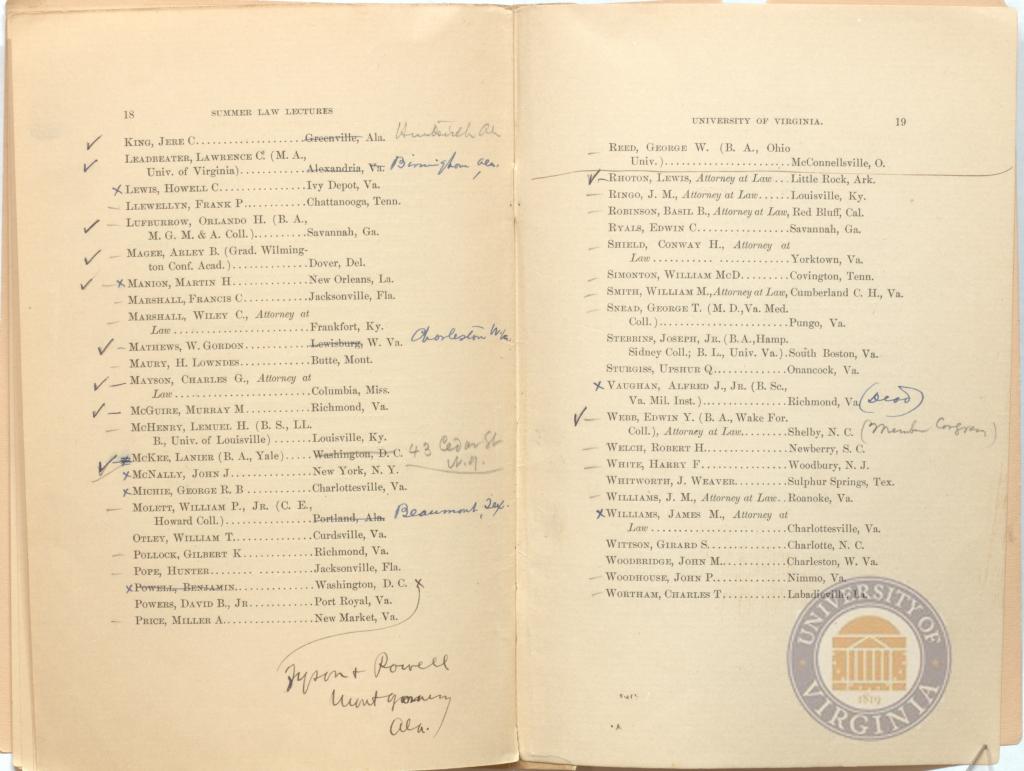 18 SUMMER LAW LECTURES
KING, JERE C....................Greenville, Ala. Huntsville Ala
LEADBEATER, LAWRENCE C. (M. A.,
Univ. of Virginia)............Alexandria, Va. Birmingham, Ala.
LEWIS, HOWELL C................Ivy Depot, Va.
LLEWELLYN, FRANK P.............Chattanooga, Tenn.
LUFBURROW, ORLANDO H. (B. A.,
M. G. M. & A. Coll.)..........Savannah, Ga.
MAGEE, ARLEY B. (Grad. Wilming-
ton Conf. Acad.)..............Dover, Del.
MANION, MARTIN H...............New Orleans, La.
MARSHALL, FRANCIS C............Jacksonville, Fla.
MARSHALL, WILEY C., Attorney at
Law .........................Frankfort, Ky.
MATHEWS, W. GORDON.............Lewisburg, W. Va. Charleston W.Va.
MAURY, H. LOWNDES..............Butte, Mont.
MAYSON, CHARLES G., Attorney at
Law .........................Columbia, Miss.
MCGUIRE, MURRAY M..............Richmond, Va.
MCHENRY, LEMUEL H. (B. S., LL.
B., Univ. of Louisville)......Louisville, Ky.
MCKEE, LANIER (B. A., Yale)....Washington, D. C. 43 Cedar St
N.Y.
MCNALLY, JOHN J................New York, N. Y.
MICHIE, GEORGE R. B............Charlottesville, Va.
MOLETT, WILLIAM P., JR. (C. E.,
Howard Coll.).................Portland, Ala. Beaumont, Tex.
OTLEY, WILLIAM T...............Curdsville, Va.
POLLOCK, GILBERT K.............Richmond, Va.
POPE, HUNTER...................Jacksonville, Fla.
POWELL, BENJAMIN...............Washington, D. C. X
POWERS, DAVID B., JR...........Port Royal, Va.
PRICE, MILLER A................New Market, Va.
Tyson & Powell
Montgomery
Ala.
UNIVERSITY OF VIRGINIA. 19
REED, GEORGE W. (B. A., Ohio
Univ.).......................McConnellsville, O.
RHOTON, LEWIS, Attorney at Law...Little Rock, Ark.
RINGO, J. M., Attorney at Law......Louisville, Ky.
ROBINSON, BASIL B., Attorney at Law, Red Bluff, Cal.
RYALS, EDWIN C.................Savannah, Ga.
SHIELD, CONWAY H., Attorney at
Law .........................Yorktown, Va.
SIMONTON, WILLIAM MCD..........Covington, Tenn.
SMITH, WILLIAM M., Attorney at Law, Cumberland C. H., Va.
SNEAD, GEORGE T. (M. D., Va. Med.
Coll.).......................Pungo, Va.
STEBBINS, JOSEPH, JR. (B. A., Hamp.
Sidney Coll.; B. L., Univ. Va.).South Boston, Va.
STURGISS, UPSHUR Q.............Onancock, Va.
VAUGHAN, ALFRED J., JR. (B. Sc.,
Va. Mil. Inst.)...............Richmond, Va. (Dead)
WEBB, EDWIN Y. (B. A., Wake For.
Coll.), Attorney at Law.......Shelby, N. C. (Member Congress)
WELCH, ROBERT H................Newberry, S. C.
WHITE, HARRY F.................Woodbury, N. J.
WHITWORTH, J. WEAVER...........Sulphur Springs, Tex.
WILLIAMS, J. M., Attorney at Law..Roanoke, Va.
WILLIAMS, JAMES M., Attorney at
Law .........................Charlottesville, Va.
WITTSON, GIRARD S..............Charlotte, N. C.
WOODBRIDGE, JOHN M.............Charleston, W. Va.
WOODHOUSE, JOHN P..............Nimmo, Va.
WORTHAM, CHARLES T.............Labadieville, La.
UNIVERSITY OF VIRGINIA
1819